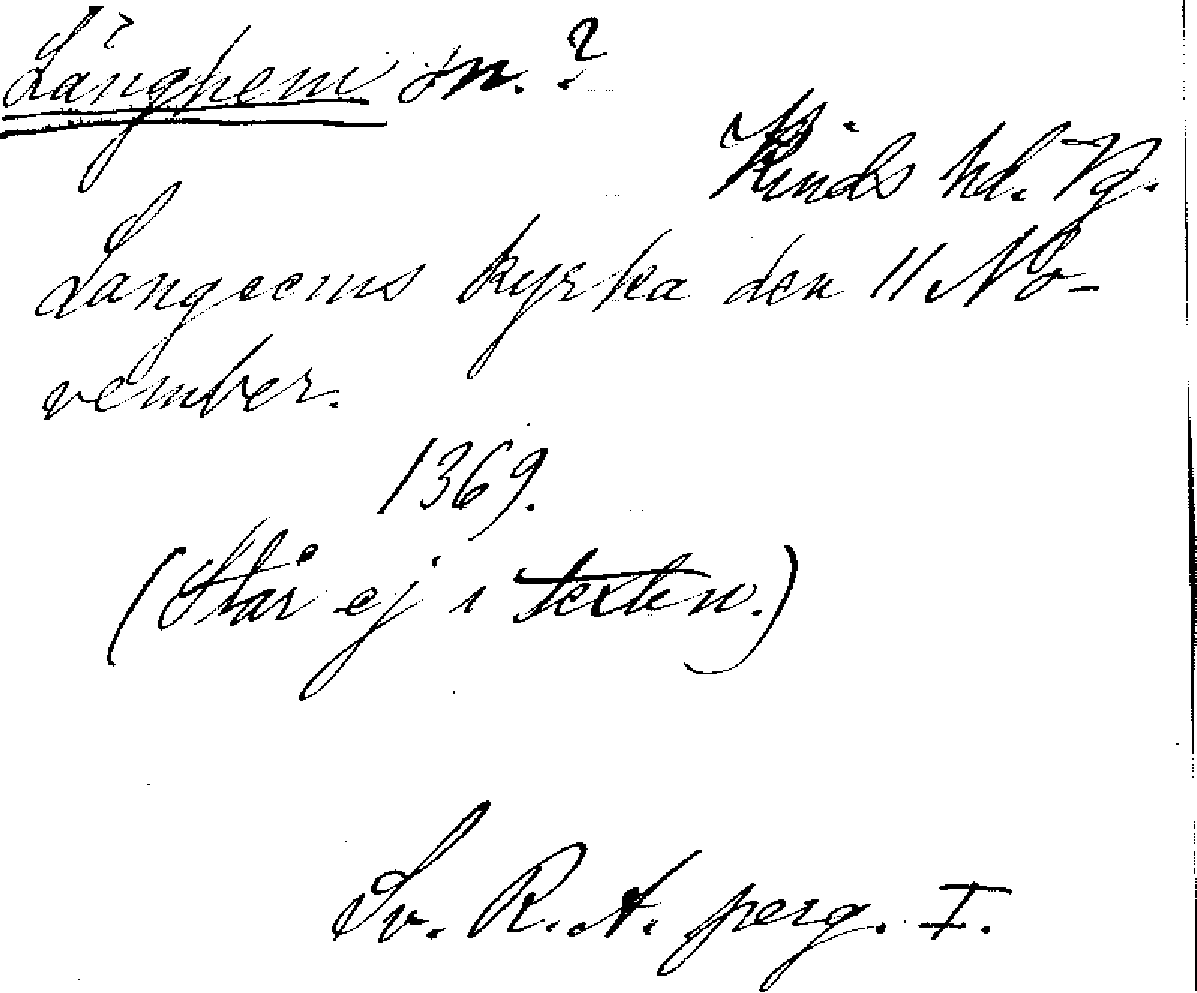 Långhem sn.?
Kinds hd. Vg.
Langeems kyrka den 11 No-
vember.
1369.
(Står ej i texten.)
Sv. R. A. perg. I.